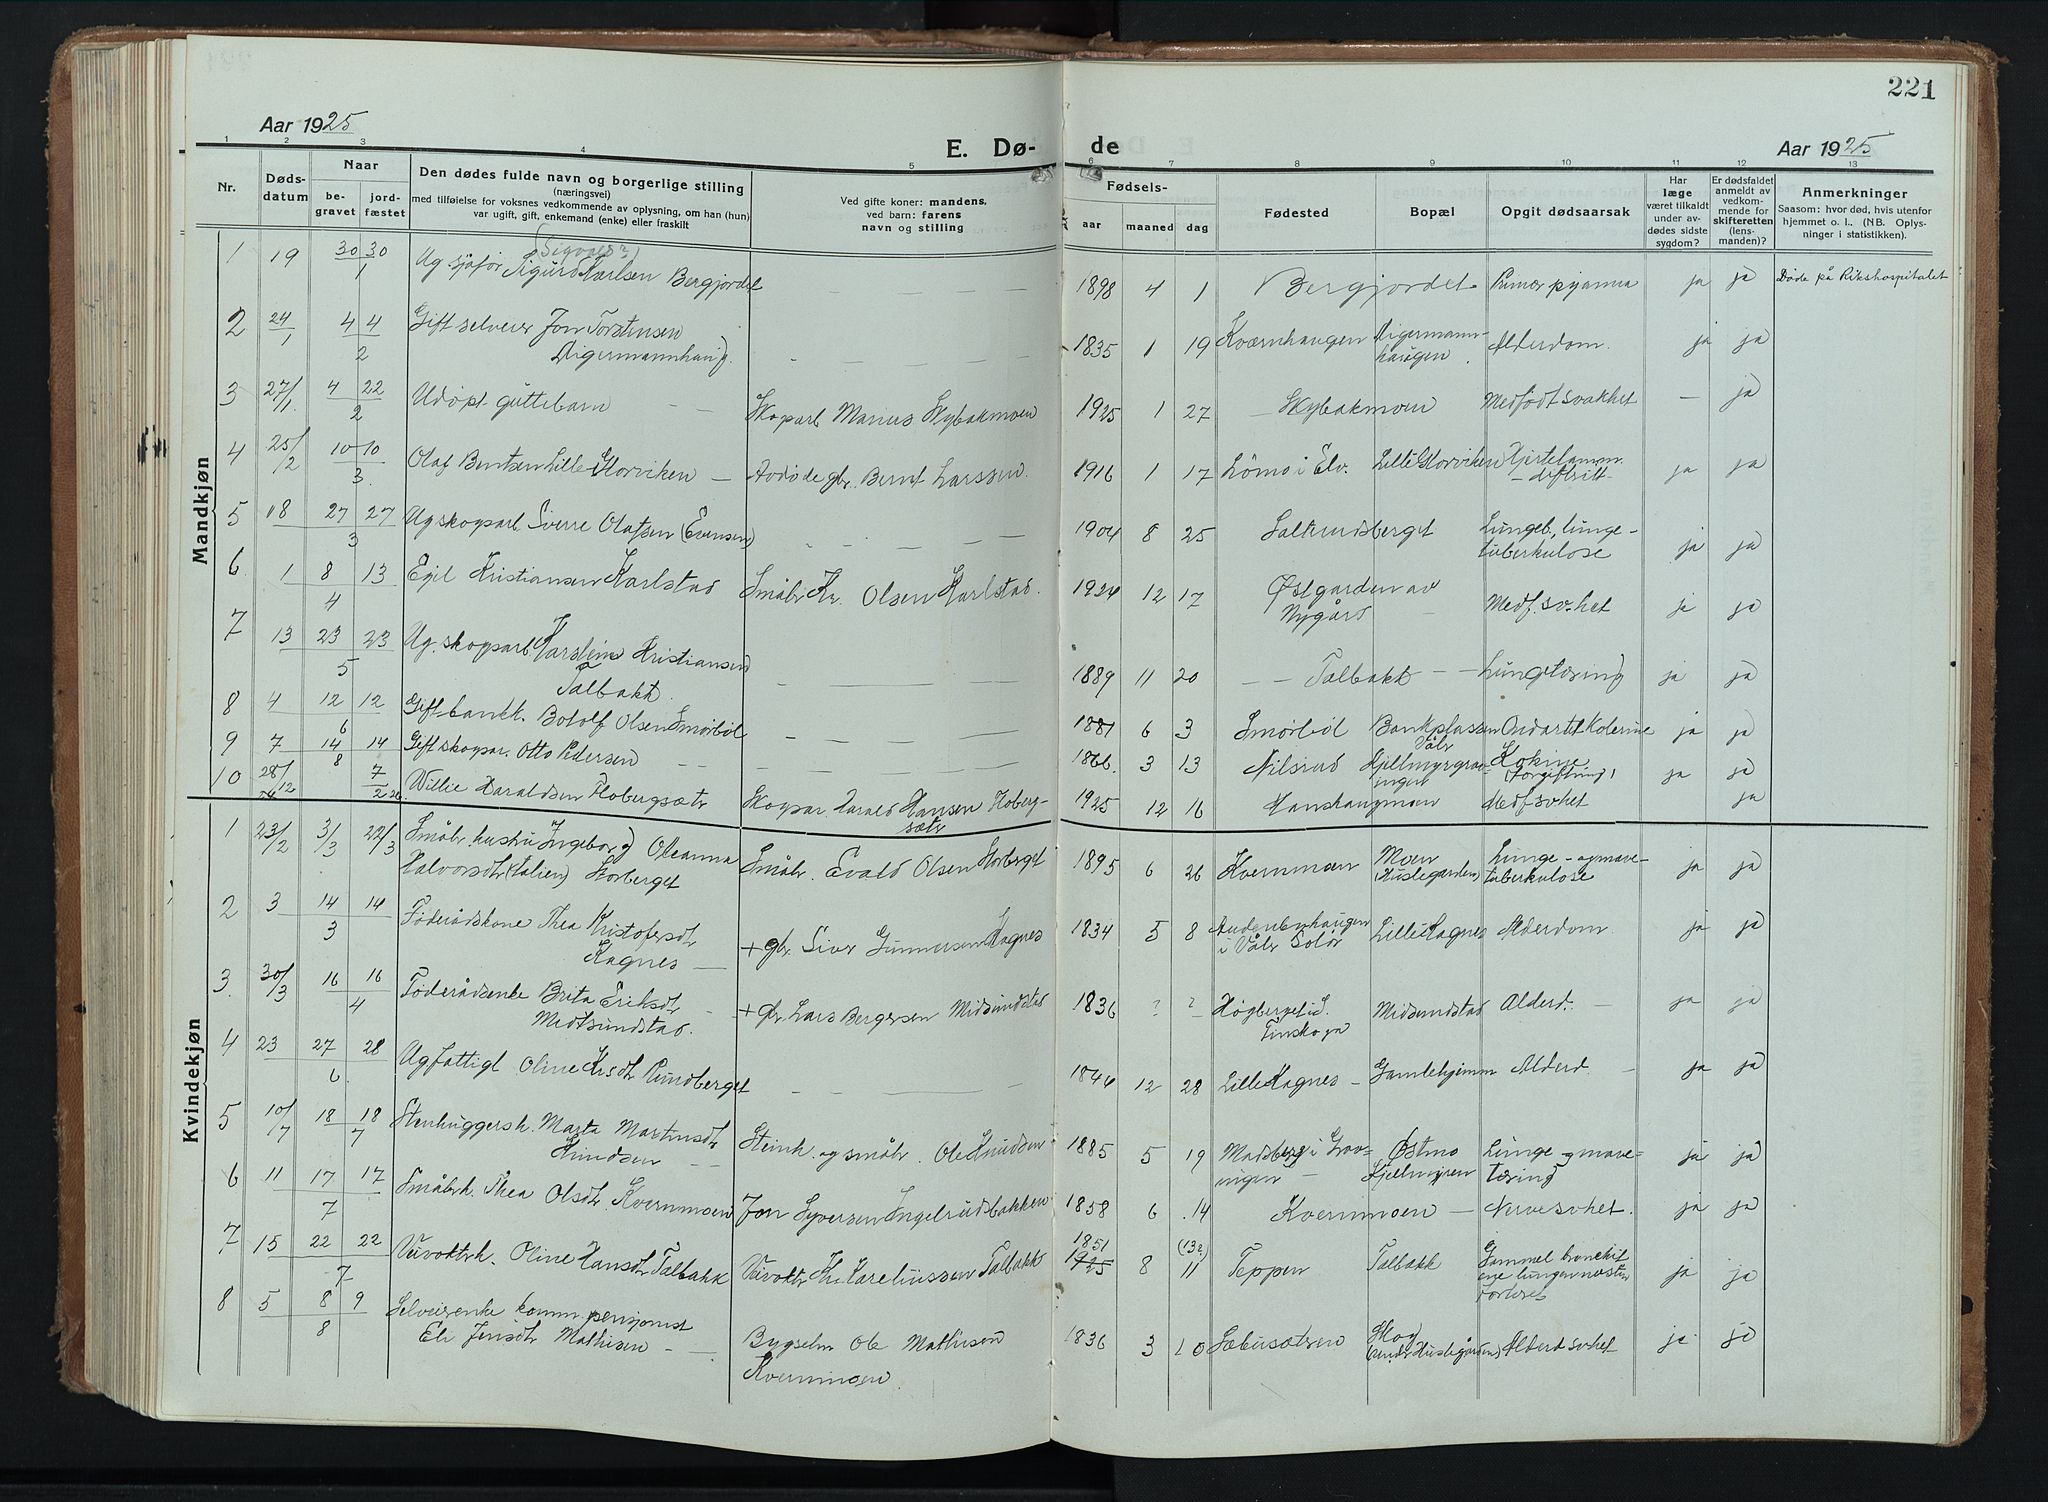 221
Aar 1925
E. Dø-
de
Aar 1925
1 2 3 4 5 6 7 8 9 10 11 12 13
Nr.
Døds-
datum
Naar
be-
gravet
jord-
fæstet
Den dødes fulde navn og borgerlige stilling
(næringsvei)
med tilføielse for voksnes vedkommende av oplysning, om han (hun)
var ugift, gift, enkemand (enke) eller fraskilt
Ved gifte koner: mandens,
ved barn: farens
navn og stilling
Fødsels-
aar
maaned
dag
Fødested
Bopæl
Opgit dødsaarsak
Har
læge
været tilkaldt
under av-
dødes sidste
sygdom?
Er dødsfaldet
anmeldt av
vedkom-
mende for
skifteretten
(lens-
manden)?
Anmerkninger
Saasom: hvor død, hvis utenfor
hjemmet o. l.. (NB. Oplys-
ninger i statistikken).
Mandkjøn
1 19/1 30/1 30/1 Ug. sjåfør Sigurd Karlsen Bergjordet (Sigvald?) 1898 4 1 Bergjordet ja ja Døde på Rikshospitalet
2 24/1 4/2 4/2 Gift selveier Jon Torstensen
Digermannhaug. 1835 1 19 Kværnhaugen Digermann-
haugen Alderdom. ja ja
3 27/1 4/2 22/2 Udøpt guttebarn Skogarb Marius Skybakmoen 1925 1 27 Skybakmoen Medfødt svakhet – ja
4 25/2 10/3 10/3 Olaf Berntsen Lille Storviken Avdøde gbr. Bernt Larssen. 1916 1 17 Lømo i Elv. Lille Storviken Hjertelamm.
difteritt ja ja
5 18/3 27/3 27/3 Ug skogarb. Sverre Olafsen (Evensen) 1904 8 25 Saltrudsberget Lungeb, lunge-
tuberkulose ja ja
6 1/4 8/4 13/4 Egil Kristiansen Karlstad Småbr Kr. Olsen Karlstad. 1924 12 17 Østgarden av
Nygård Medf. sv.het ja ja
7 13/5 23/5 23/5 Ug. skogsarb. Karstein Kristiansen
Talbakk. 1889 11 20 Talbakk Lungetæring ja ja
8 4/6 12/6 12/6 Gift bankk. Botolf Olsen Smørbøl 1881 6 3 Smørbøl Bankplassen
Våler Ondartet Kolerine ja ja
9 7/8 14/8 14/8 Gift skogar. Otto Pedersen 1866. 3 13 Nilsrud Kjellmyrgrav-
ingen (forgiftning) ja ja
10 28/12 7/2 26 Willie Haraldsen Hobergsætr Skogar. Harald Hansen Hoberg-
sætr 1925 12 16 Hanshaugmoen Medf svhet ja
Kvindekjøn
1 23/2 3/3 22/3 Småbr. hustru Ingeborg Oleanna
Halvorsdtr (Lalien) Storberget Småbr. Evald Olsen Storberget 1895 6 26 Kvernmoen Moen
(Huslegarden) Lunge- og mave-
tuberkulose ja ja
2 3/3 14/3 14/3 Føderådskone Thea Kristofersdtr
Kagnes + gbr. Siver Gunnersen Kagnes 1834 5 8
i Våler Solør Lille Kagnes Alderdom. ja ja
3. 30/3 16/4 16/4 Føderådsenke Brita Eriksdtr
Midtsundstad. + gbr. Lars Bergersen Midsundstad 1836 ? ? Høgberget i S.
Finskoga Midsundstad Alderd. ja ja
4 23/6 27/6 28 Ug fattigl Oline Krsdtr Rundberget 1844 12 28 Lille Kagnes Gamlehjemm Alderd. ja ja
5 10/7 18/7 18/7 Stenhuggersk. Marta Martinsdtr
Knudsen Steinh. og småbr. Ole Knudsen 1885 5 19 Madsberg i Grav-
ingen Østmo
Kjellmyren Lunge- og mave-
tæring ja ja
6 11/7 17/7 17/7 Småbrk. Thea Olsdtr Kvernmoen Jon Syversen Ingelrudsbakken 1858 6 14 Kvernmoen Nervesvhet. ja ja
7 15/7 22/7 22/7 Veivokterk. Oline Hansdtr Talbakk Veivoktr Kr Kareliussen Talbakk 1851 1925 8 (13?) 11 Teppen Talbakk Gammel bronchit
ja ja
8 5/8 8/8 9/8 Selveierenke komm pensjonist
Eli Jensdtr Mathisen Bygselm Ole Mathisen
Kvernmoen. 1836 3 10 Sætersætren Skog
(under Huslegården) Alderd svhet ja ja